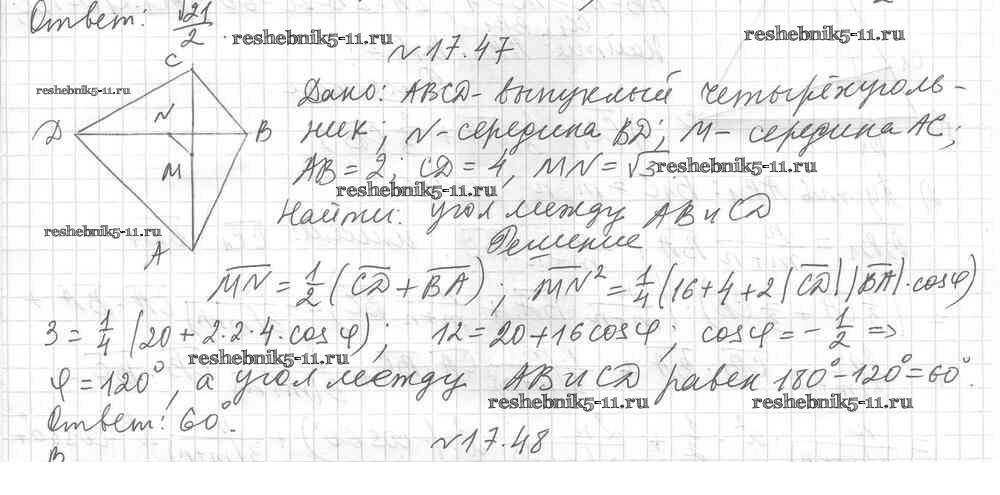 Ответ: √21/2.
reshebnik5-11.ru
reshebnik5-11.ru
№17.47
C
reshebnik5-11.ru
Дано: ABCD - выпуклый четырёхуголь-
N
D
B
ник; N - середина BD; M - середина AC;
M
AB = 2; CD = 4, MN = √3
reshebnik5-11.ru
reshebnik5-11.ru
Найти: угол между AB и CD
reshebnik5-11.ru
A
Решение
MN = 1/2 (CD + BA); MN² = 1/4 (16 + 4 + 2|CD||BA|·cosφ)
3 = 1/4 (20 + 2·2·4·cosφ); 12 = 20 + 16cosφ; cosφ = -1/2 =>
reshebnik5-11.ru
φ = 120°, а угол между AB и CD равен 180° - 120° = 60°.
reshebnik5-11.ru
reshebnik5-11.ru
Ответ: 60°.
№17.48
B